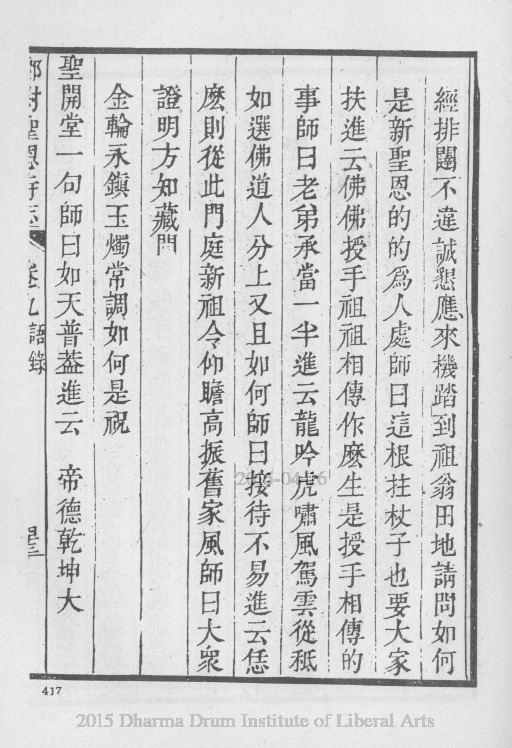 經排闥不違誠懇應來機踏到祖翁田地請問如何
是新聖恩的的爲人處師曰這根拄杖子也要大家
扶進云佛佛授手祖祖相傳作麽生是授手相傳的
事師曰老弟承當一半進云龍吟虎嘯風駕雲從秪
如選佛道人分上又且如何師曰接待不易進云恁
麽則從此門庭新祖令仰瞻高振舊家風師曰大衆
證明方知藏門
金輪永鎮玉燭常調如何是祝
聖開堂一句師曰如天普葢進云 帝德乾坤大
聖恩寺志 卷九 語錄
417
2015 Dharma Drum Institute of Liberal Arts